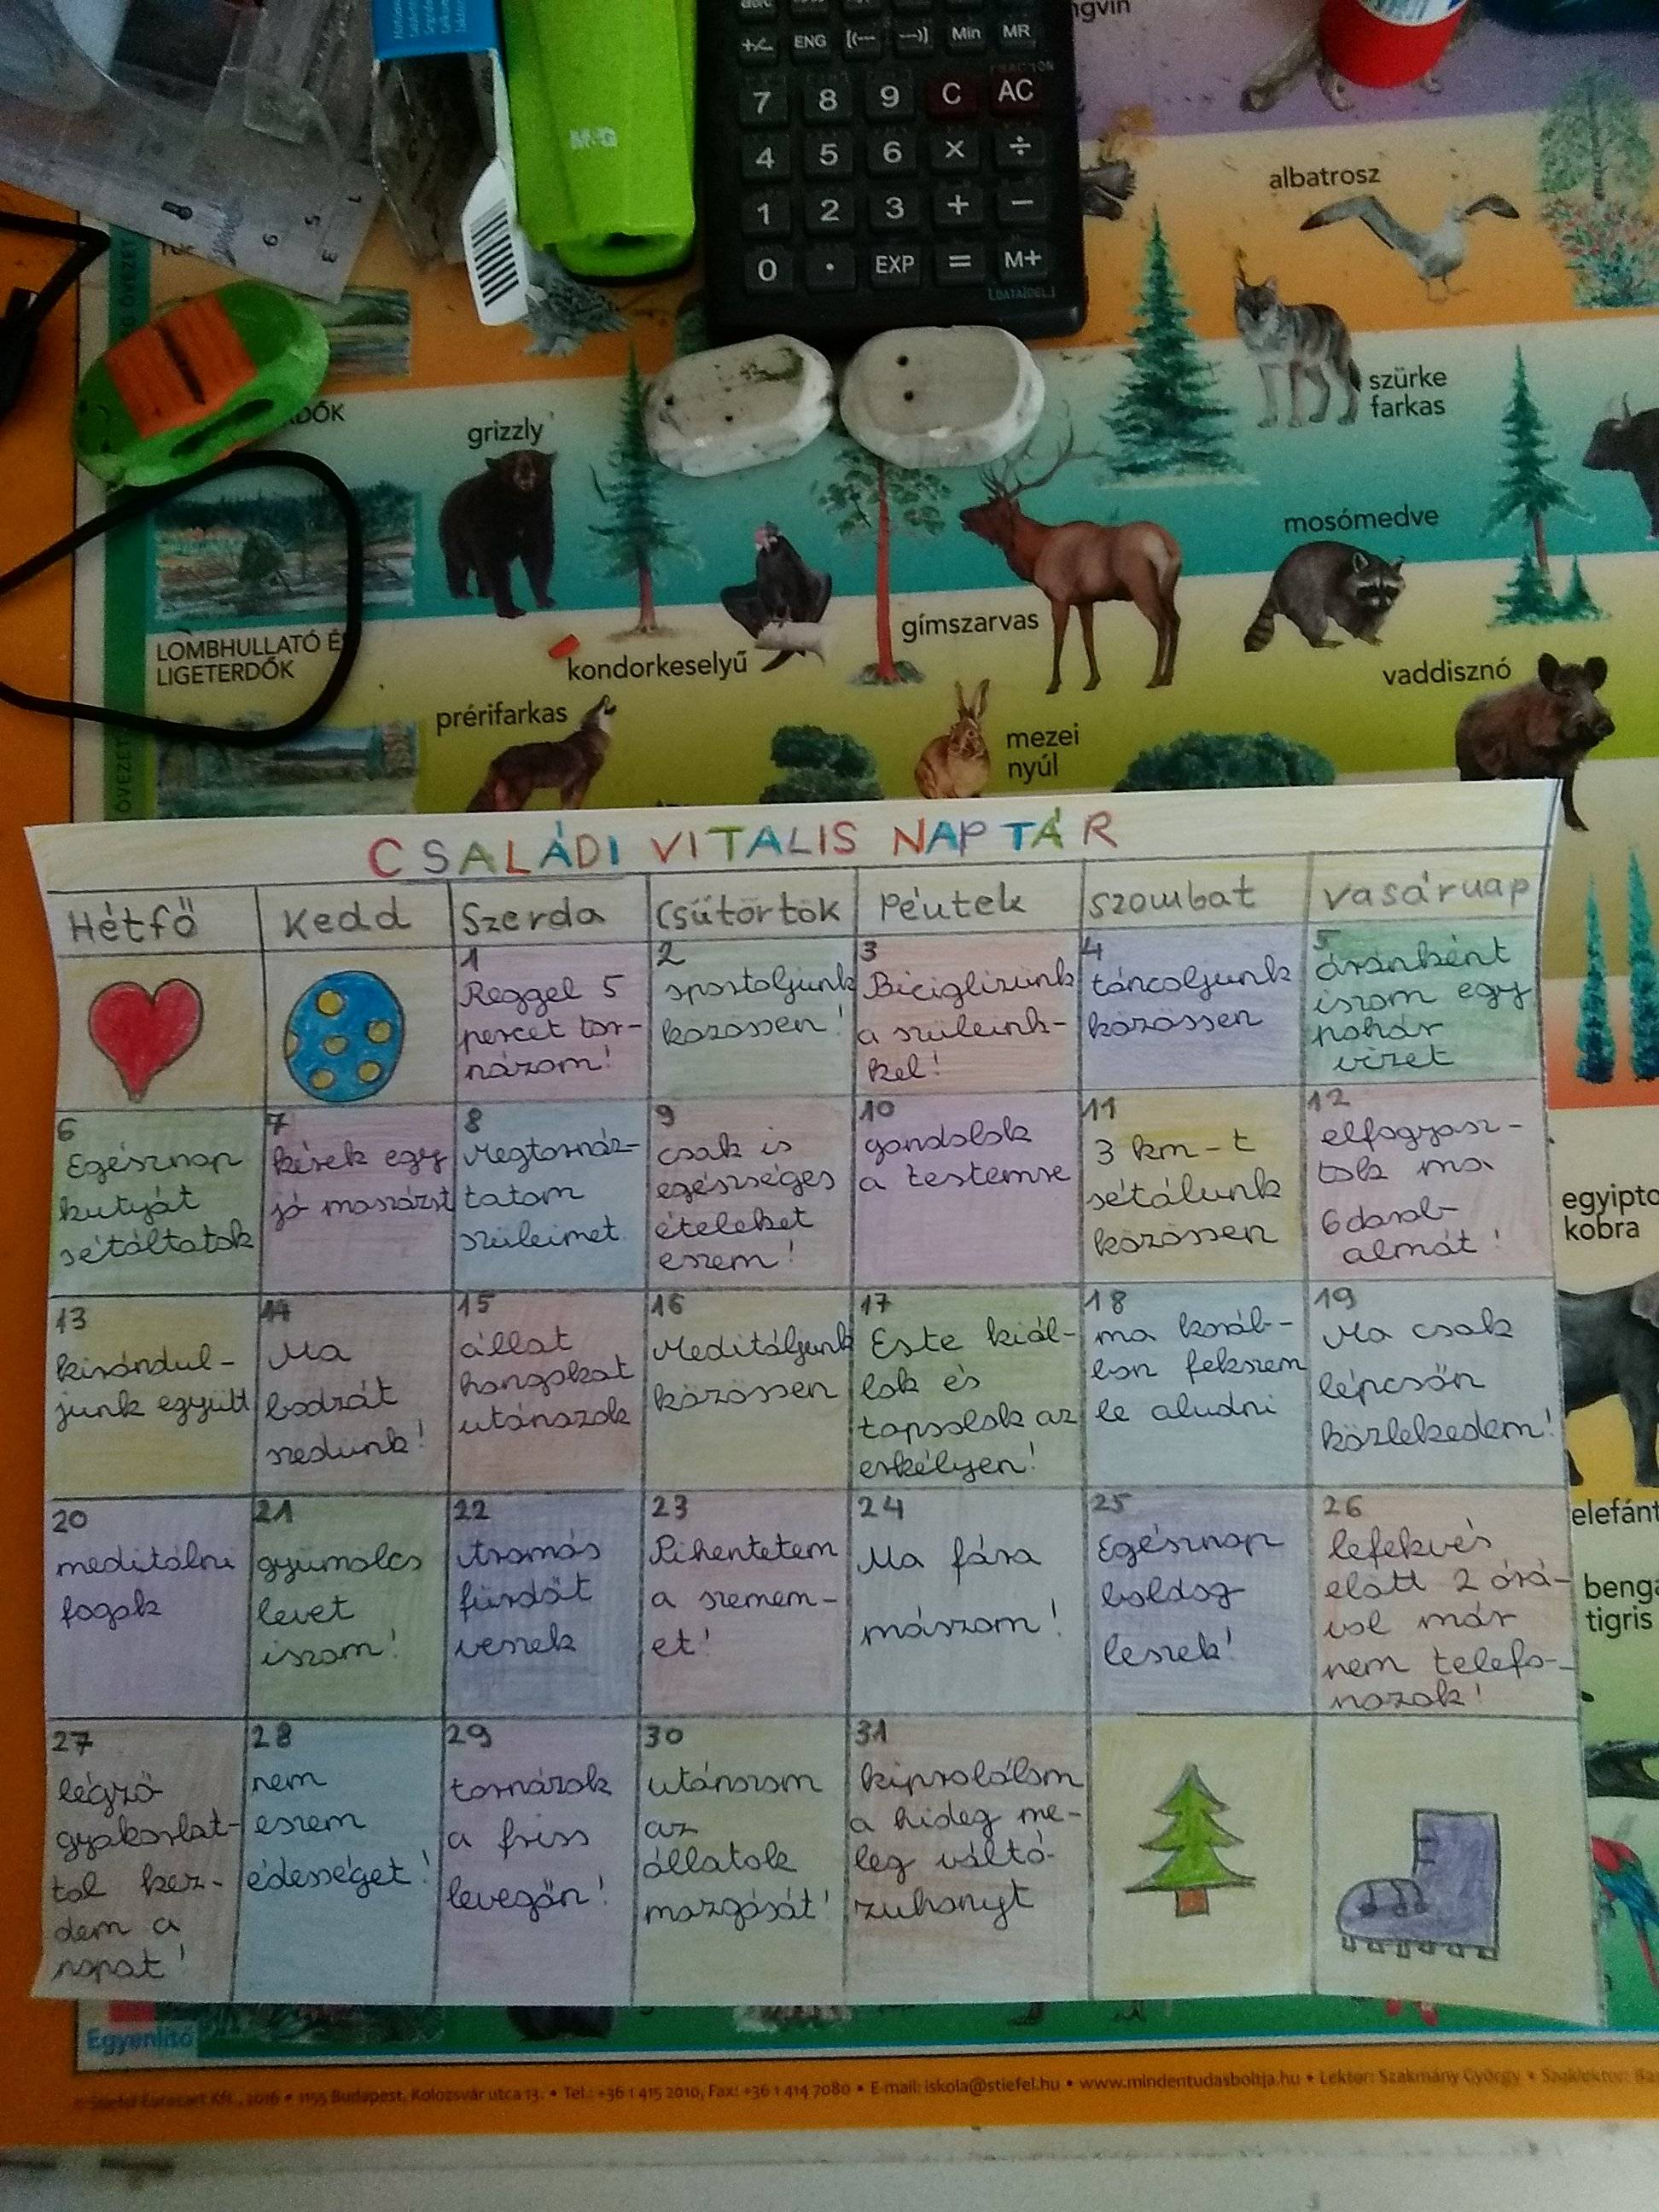 ngvin
+/- ENG [(--- ---)] Min MR
7 8 9 C AC
4 5 6 × ÷
1 2 3 + −
0 · EXP = M+
[DATA[DEL]
M&G
albatrosz
szürke
farkas
grizzly
mosómedve
gímszarvas
LOMBHULLATÓ ÉS
LIGETERDŐK
kondorkeselyű
vaddisznó
prérifarkas
mezei
nyúl
CSALÁDI VITALIS NAPTÁR
Hétfő Kedd Szerda Csütörtök Péntek Szombat Vasárnap
1
Reggel 5
percet tor-
názom!
2
sportoljunk
közössen!
3
Biciglizünk
a szüleink-
kel!
4
táncoljunk
közössen
5
óránként
iszom egy
pohár
vizet
6
Egésznap
kutyát
sétáltatok
7
kérek egy
jó maszázst
8
Megtornáz-
tatom
szüleimet
9
csak is
egészséges
ételeket
eszem!
10
gondolok
a testemre
11
3 km-t
sétálunk
közössen
12
elfogyasz-
tok ma
6 darab
almát!
13
kirándul-
junk együtt
14
Ma
bodzát
szedünk!
15
állat
hangokat
utánozok
16
Meditáljunk
közössen
17
Este kiál-
lok és
tapsolok az
erkélyen!
18
ma koráb-
ban fekszem
le aludni
19
Ma csak
lépcsőn
közlekedem!
20
meditálni
fogok
21
gyümölcs
levet
iszom!
22
Aromás
fürdőt
veszek
23
Pihentetem
a szemem-
et!
24
Ma fára
mászom!
25
Egésznap
boldog
leszek!
26
lefekvés
előtt 2 órá-
val már
nem telefo-
nozok!
27
légző
gyakorlat-
tal kez-
dem a
napot!
28
nem
eszem
édességet!
29
tornázok
a friss
levegőn!
30
utánzom
az
állatok
mozgását!
31
kiprolálom
a hideg me-
leg váltó-
zuhanyt
egyipto
kobra
elefánt
beng
tigris
Egyenlítő
© Stiefel Eurocart Kft., 2016 • 1155 Budapest, Kolozsvár utca 13. • Tel.: +36 1 415 2010, Fax: +36 1 414 7080 • E-mail: iskola@stiefel.hu • www.mindentudasboltja.hu • Lektor: Szakmány György • Szaklektor: Ba